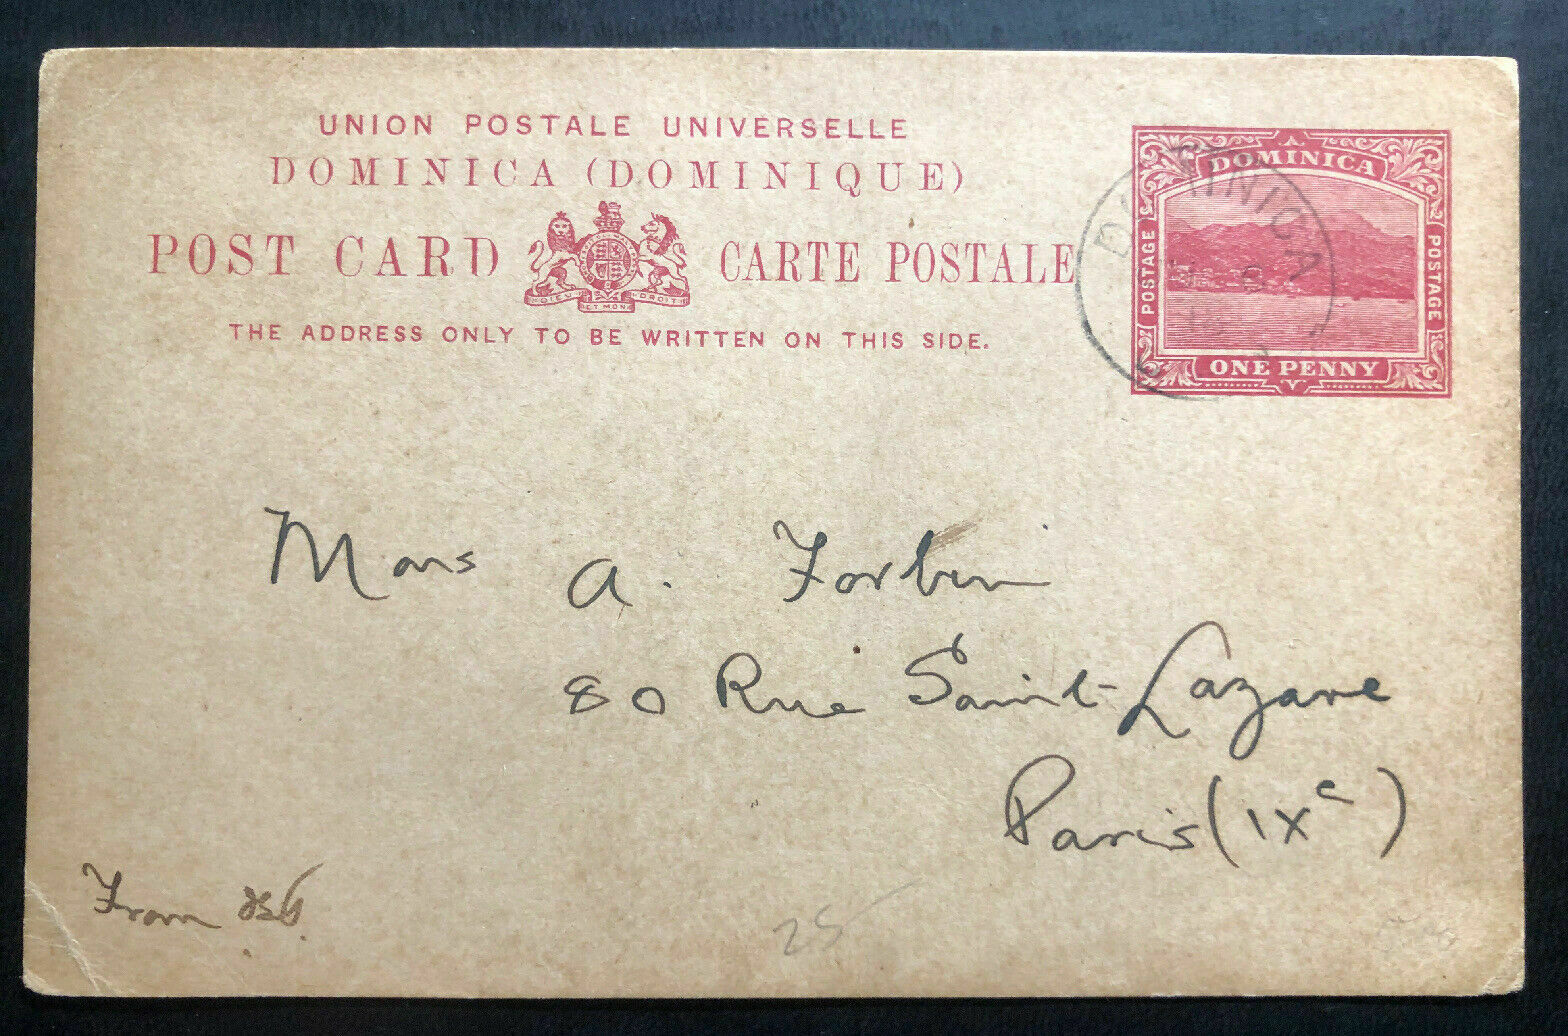 UNION POSTALE UNIVERSELLE
DOMINICA (DOMINIQUE)
POST CARD CARTE POSTALE
THE ADDRESS ONLY TO BE WRITTEN ON THIS SIDE.
DOMINICA
POSTAGE POSTAGE
ONE PENNY
DOMINICA
Mons A. Forbin
80 Rue Saint-Lazare
Paris (IXe)
From
25